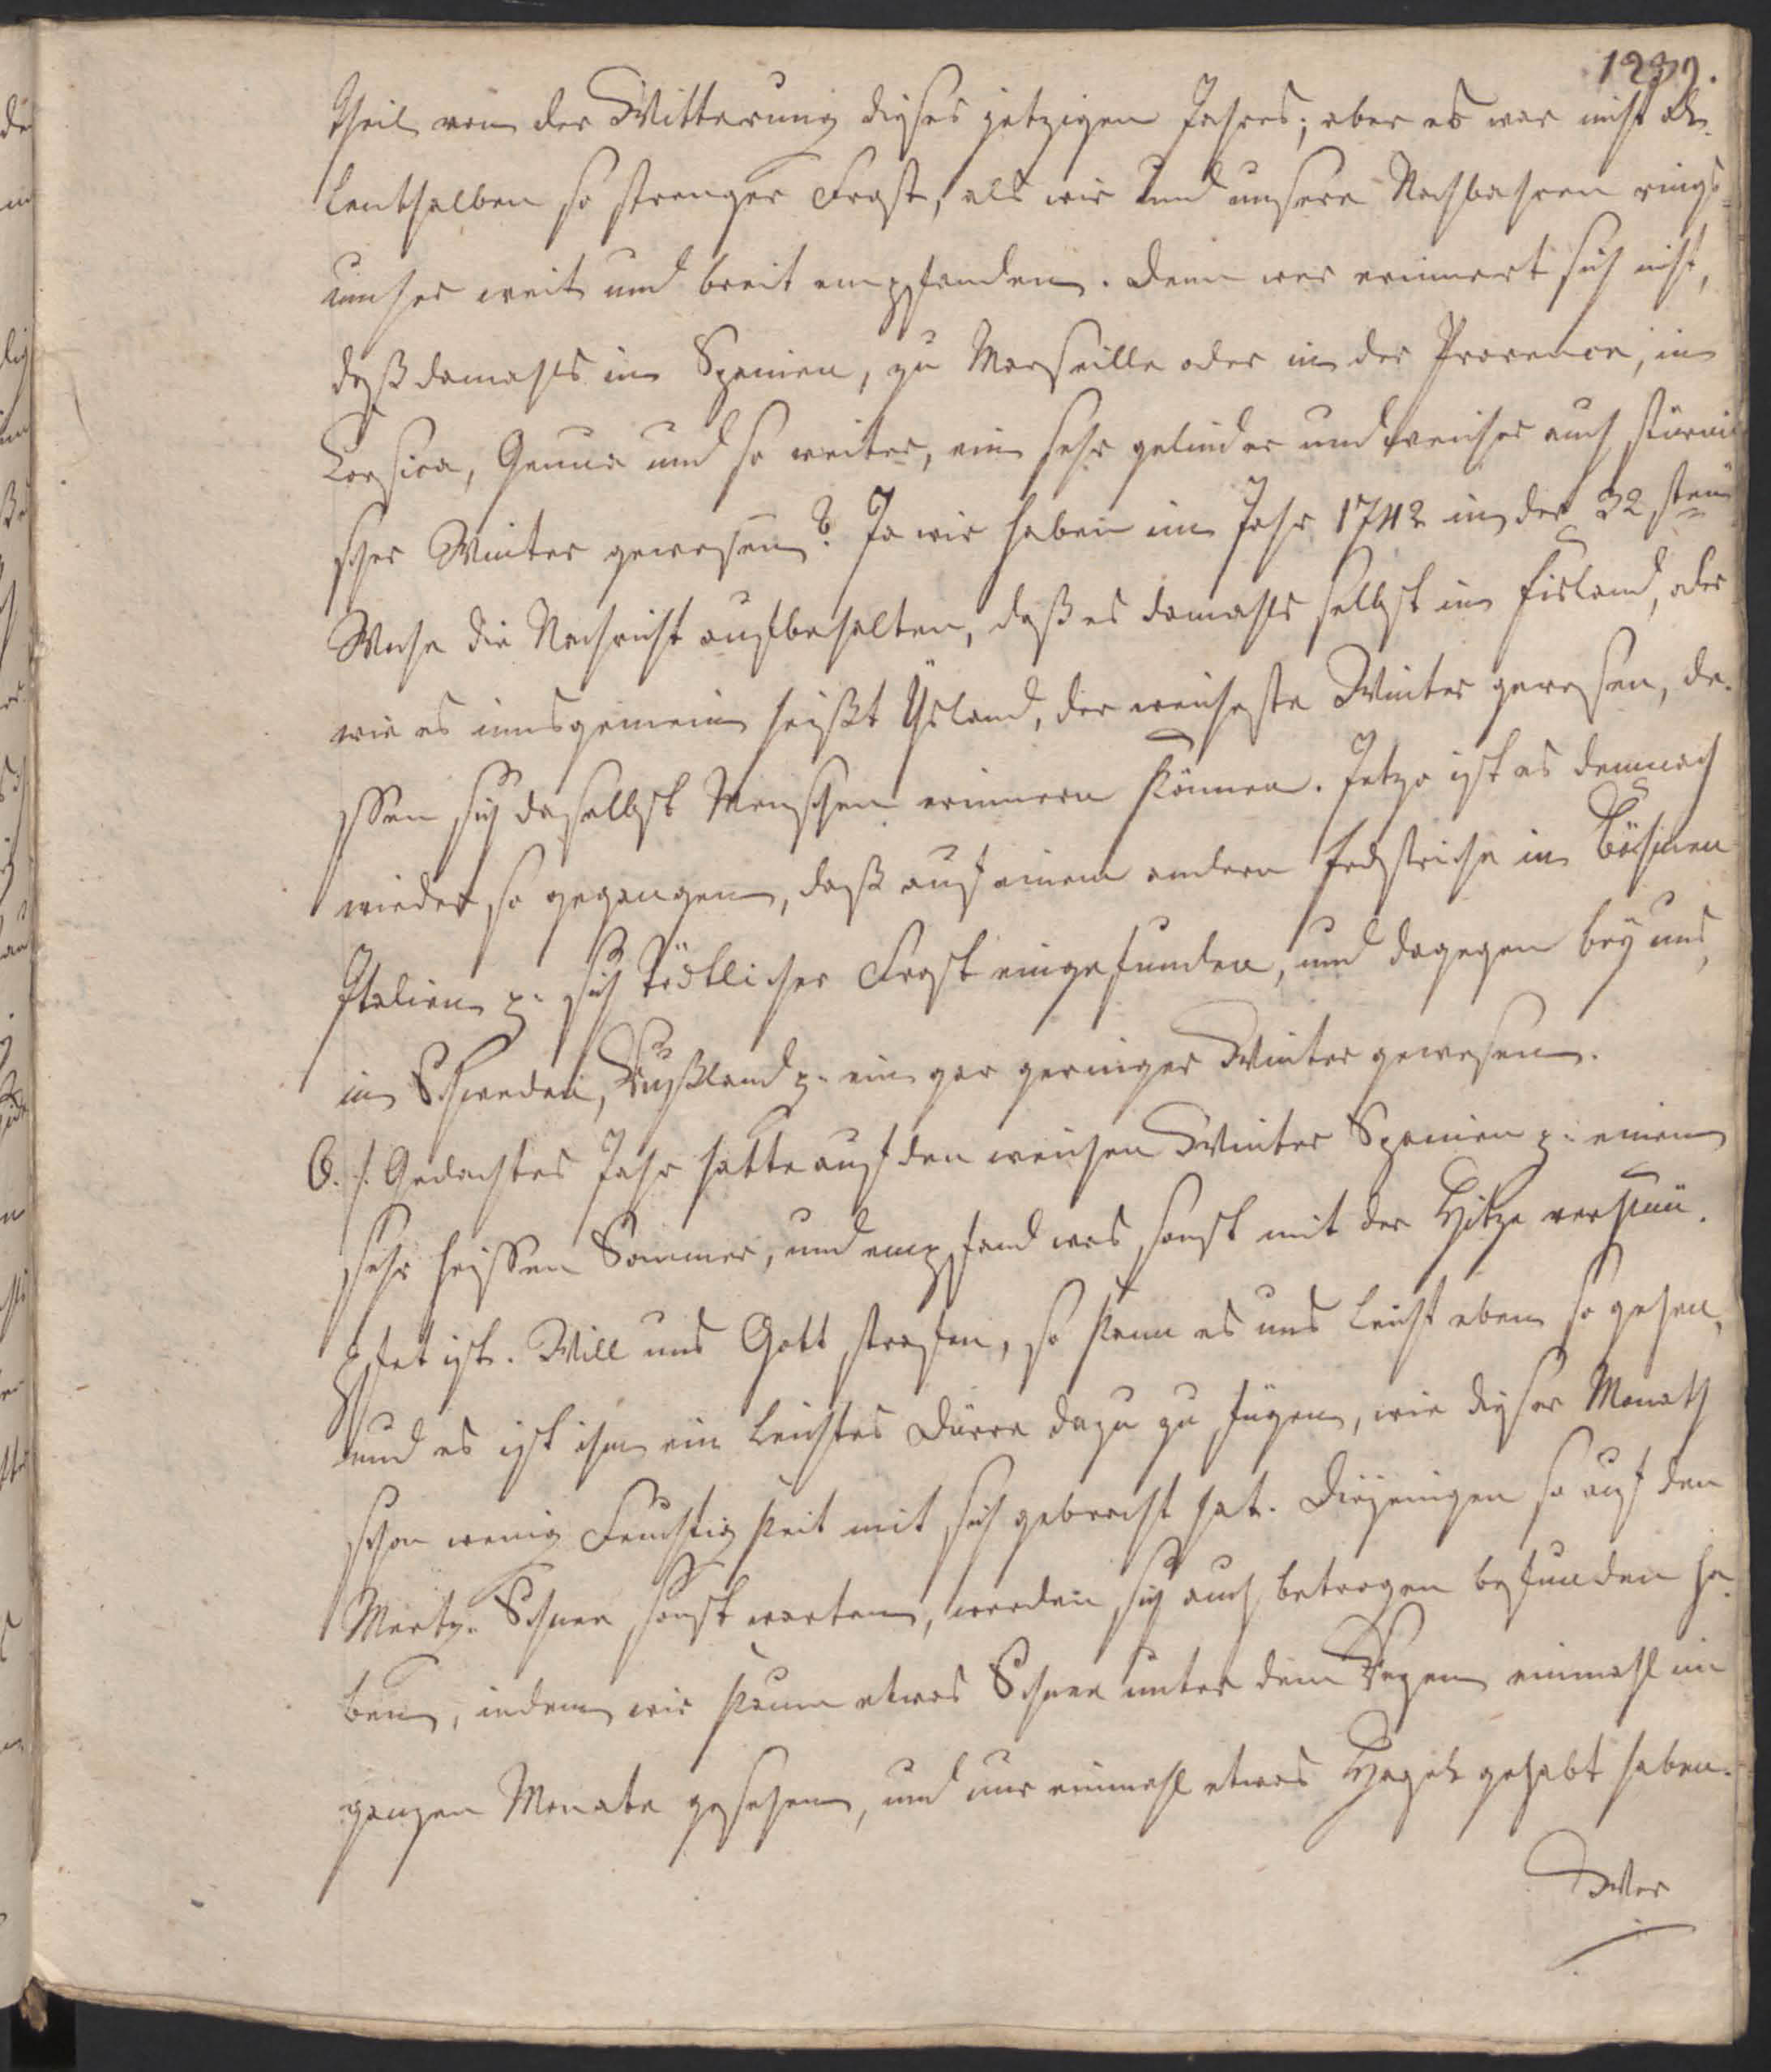 1239.
Theil von der Witterung dieses jetzigen Jahres; aber es war nicht al-
lenthalben so strenger Frost, als wir und unsere Nachbahren rings-
umher weit und breit empfanden. Denn wer erinnert sich nicht,
daß damahls in Spanien, zu Marseille oder in der Provence, in
Corsica, Genua und so weiter, ein sehr gelinder und weicher auch stürmi
scher Winter gewesen? Ja wir haben im Jahr 1742 in der 32 sten
Woche die Nachricht aufbehalten, daß es damahls selbst in Eisland, oder
wie es insgemein heißt Ysland, der weicheste Winter gewesen, de-
ssen sich daselbst Menschen erinnern können. Jetzo ist es demnach
wieder so gegangen, daß auf einem andern Erdstriche in Böhmen
Italien p. sich tödtlicher Frost eingefunden, und dagegen bey uns,
in Schweden, Rußland p. ein gar geringer Winter gewesen.
6. f. Gedachtes Jahr hatte auf den weichen Winter Spanien p. einen
sehr heissen Sommer, und empfand was sonst mit der Hitze verknü-
pfet ist. Will uns Gott strafen, so kann es uns leicht eben so gehen,
und es ist ihm ein leichtes Dürre dazu zu fügen, wie dieser Monath
schon wenig Feuchtigkeit mit sich gebracht hat. Diejenigen so auf den
Mertz-Schnee sonst warten, werden sich auch betrogen befunden ha-
ben, indem wir kaum etwas Schnee unter dem Regen einmahl im
ganzen Monate gesehen, und nur einmahl etwas Hagel gehabt haben.
Wer